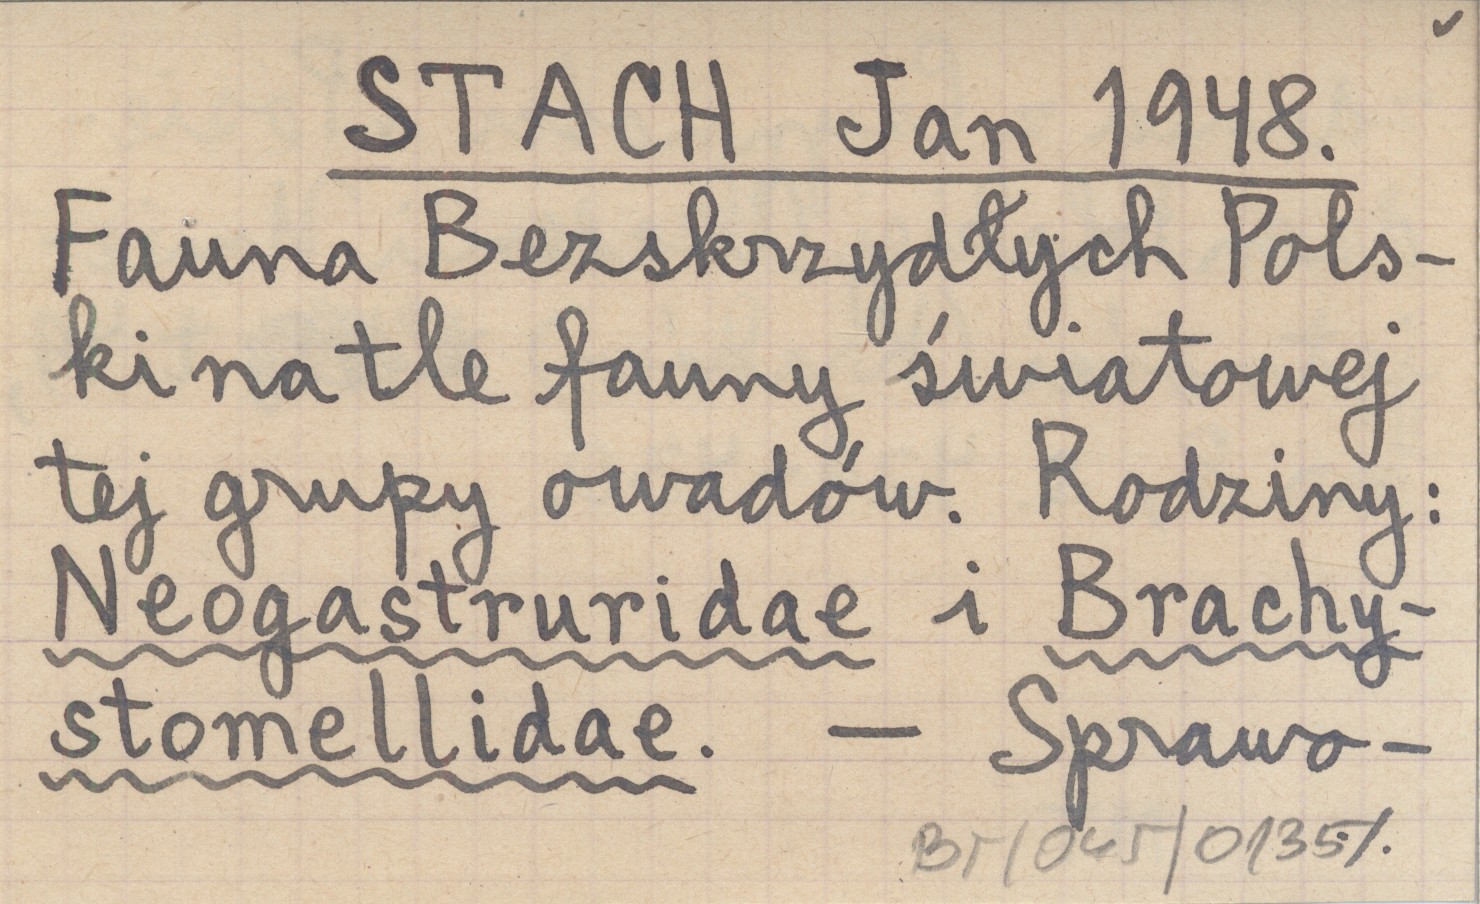 STACH Jan 1948.
Fauna Bezskrzydłych Pols-
ki na tle fauny światowej
tej grupy owadów. Rodziny:
Neogastruridae i Brachy-
stomellidae. — Sprawo-